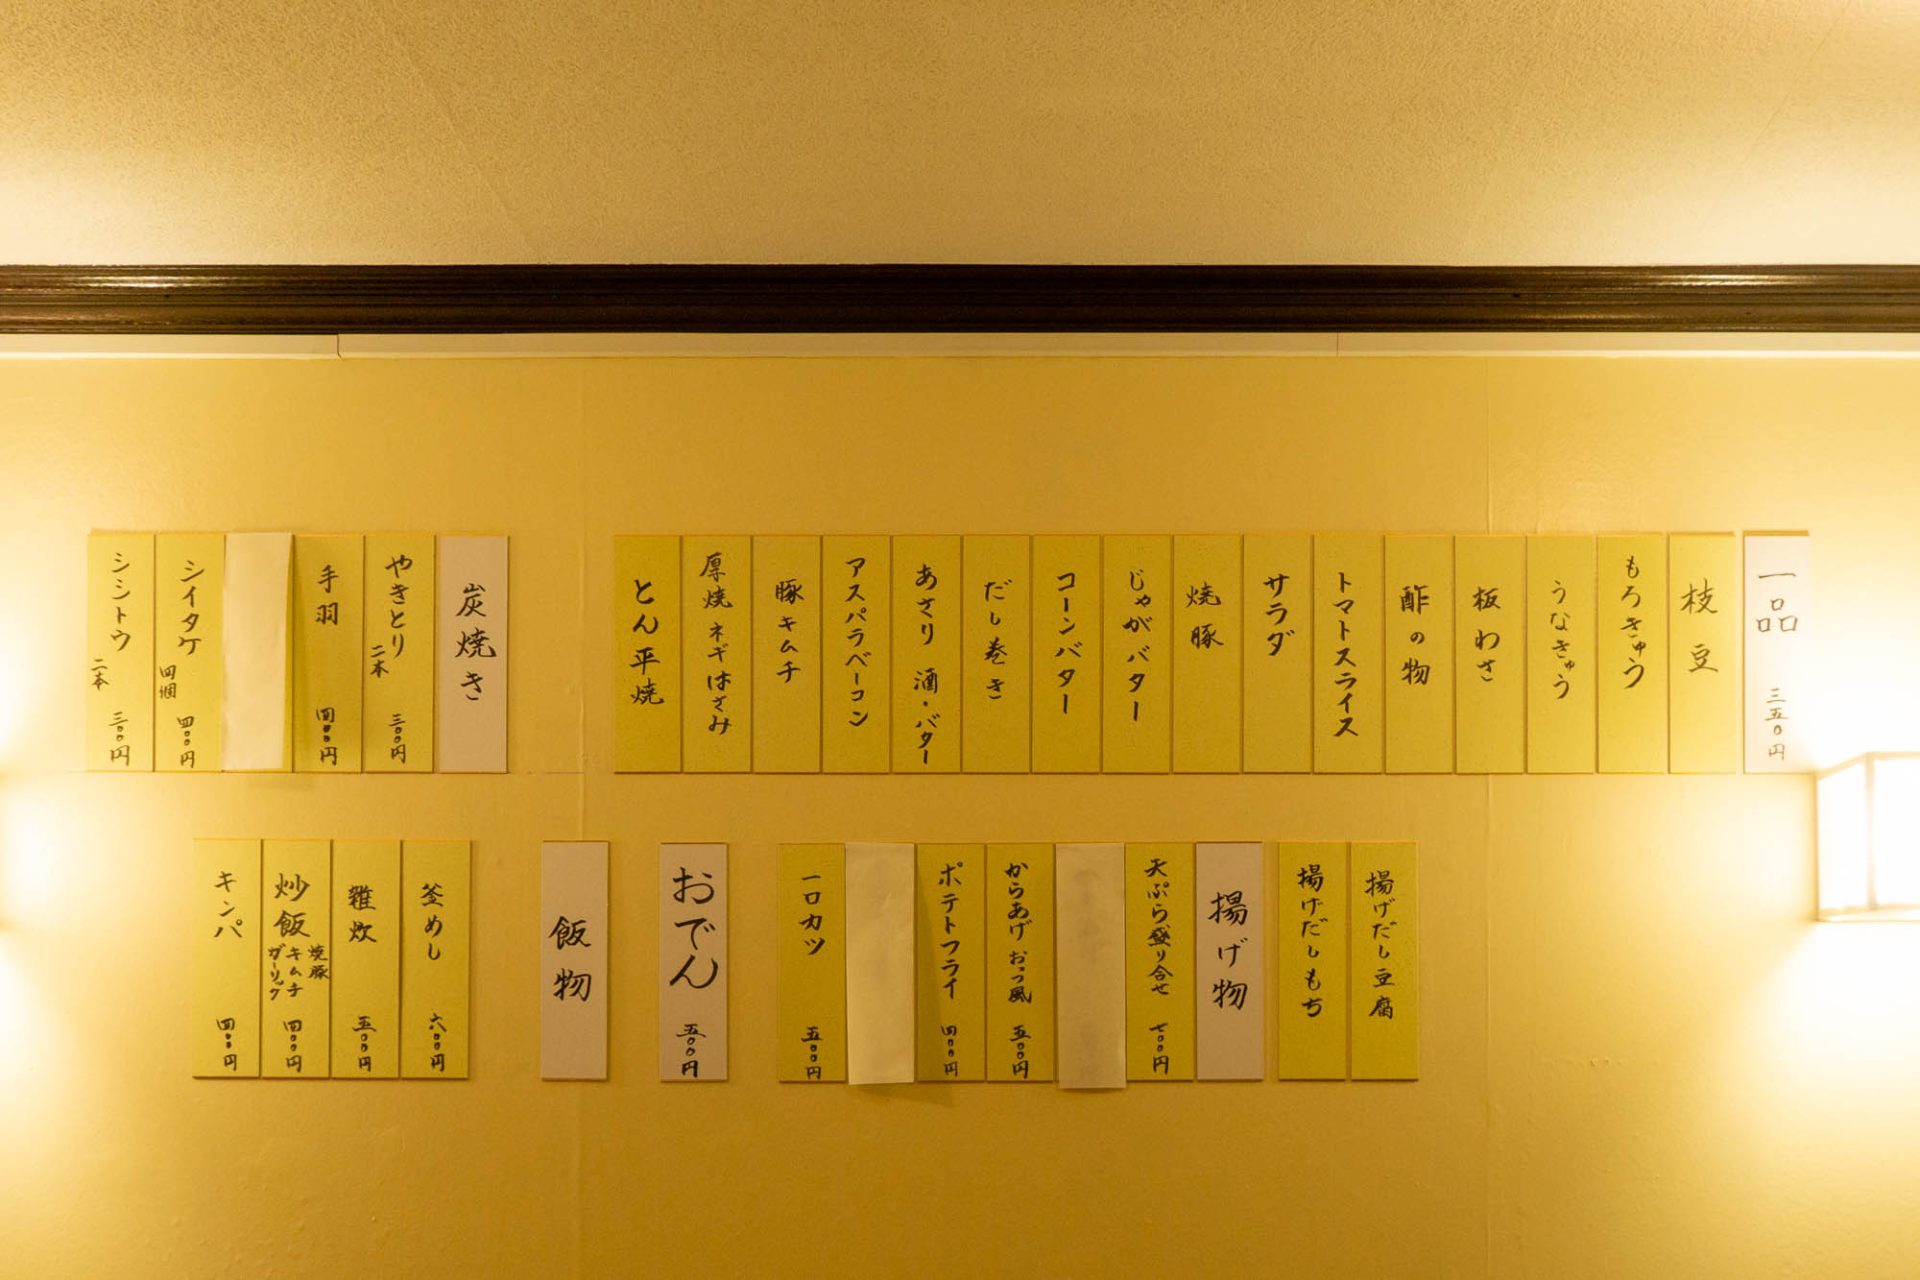 一品 三五〇円
枝豆
もろきゅう
うなきゅう
板わさ
酢の物
トマトスライス
サラダ
焼豚
じゃがバター
コーンバター
だし巻き
あさり 酒・バター
アスパラベーコン
豚キムチ
厚焼 ネギはさみ
とん平焼
炭焼き
やきとり 二本 三〇〇円
手羽 四〇〇円
シイタケ 四個 四〇〇円
シシトウ 二本 三〇〇円
揚げだし豆腐
揚げだしもち
揚げ物
天ぷら盛り合せ 七〇〇円
からあげ おっつ風 五〇〇円
ポテトフライ 四〇〇円
一口カツ 五〇〇円
おでん 五〇〇円
飯物
釜めし 六〇〇円
雑炊 五〇〇円
炒飯 焼豚 キムチ ガーリック 四〇〇円
キンパ 四〇〇円